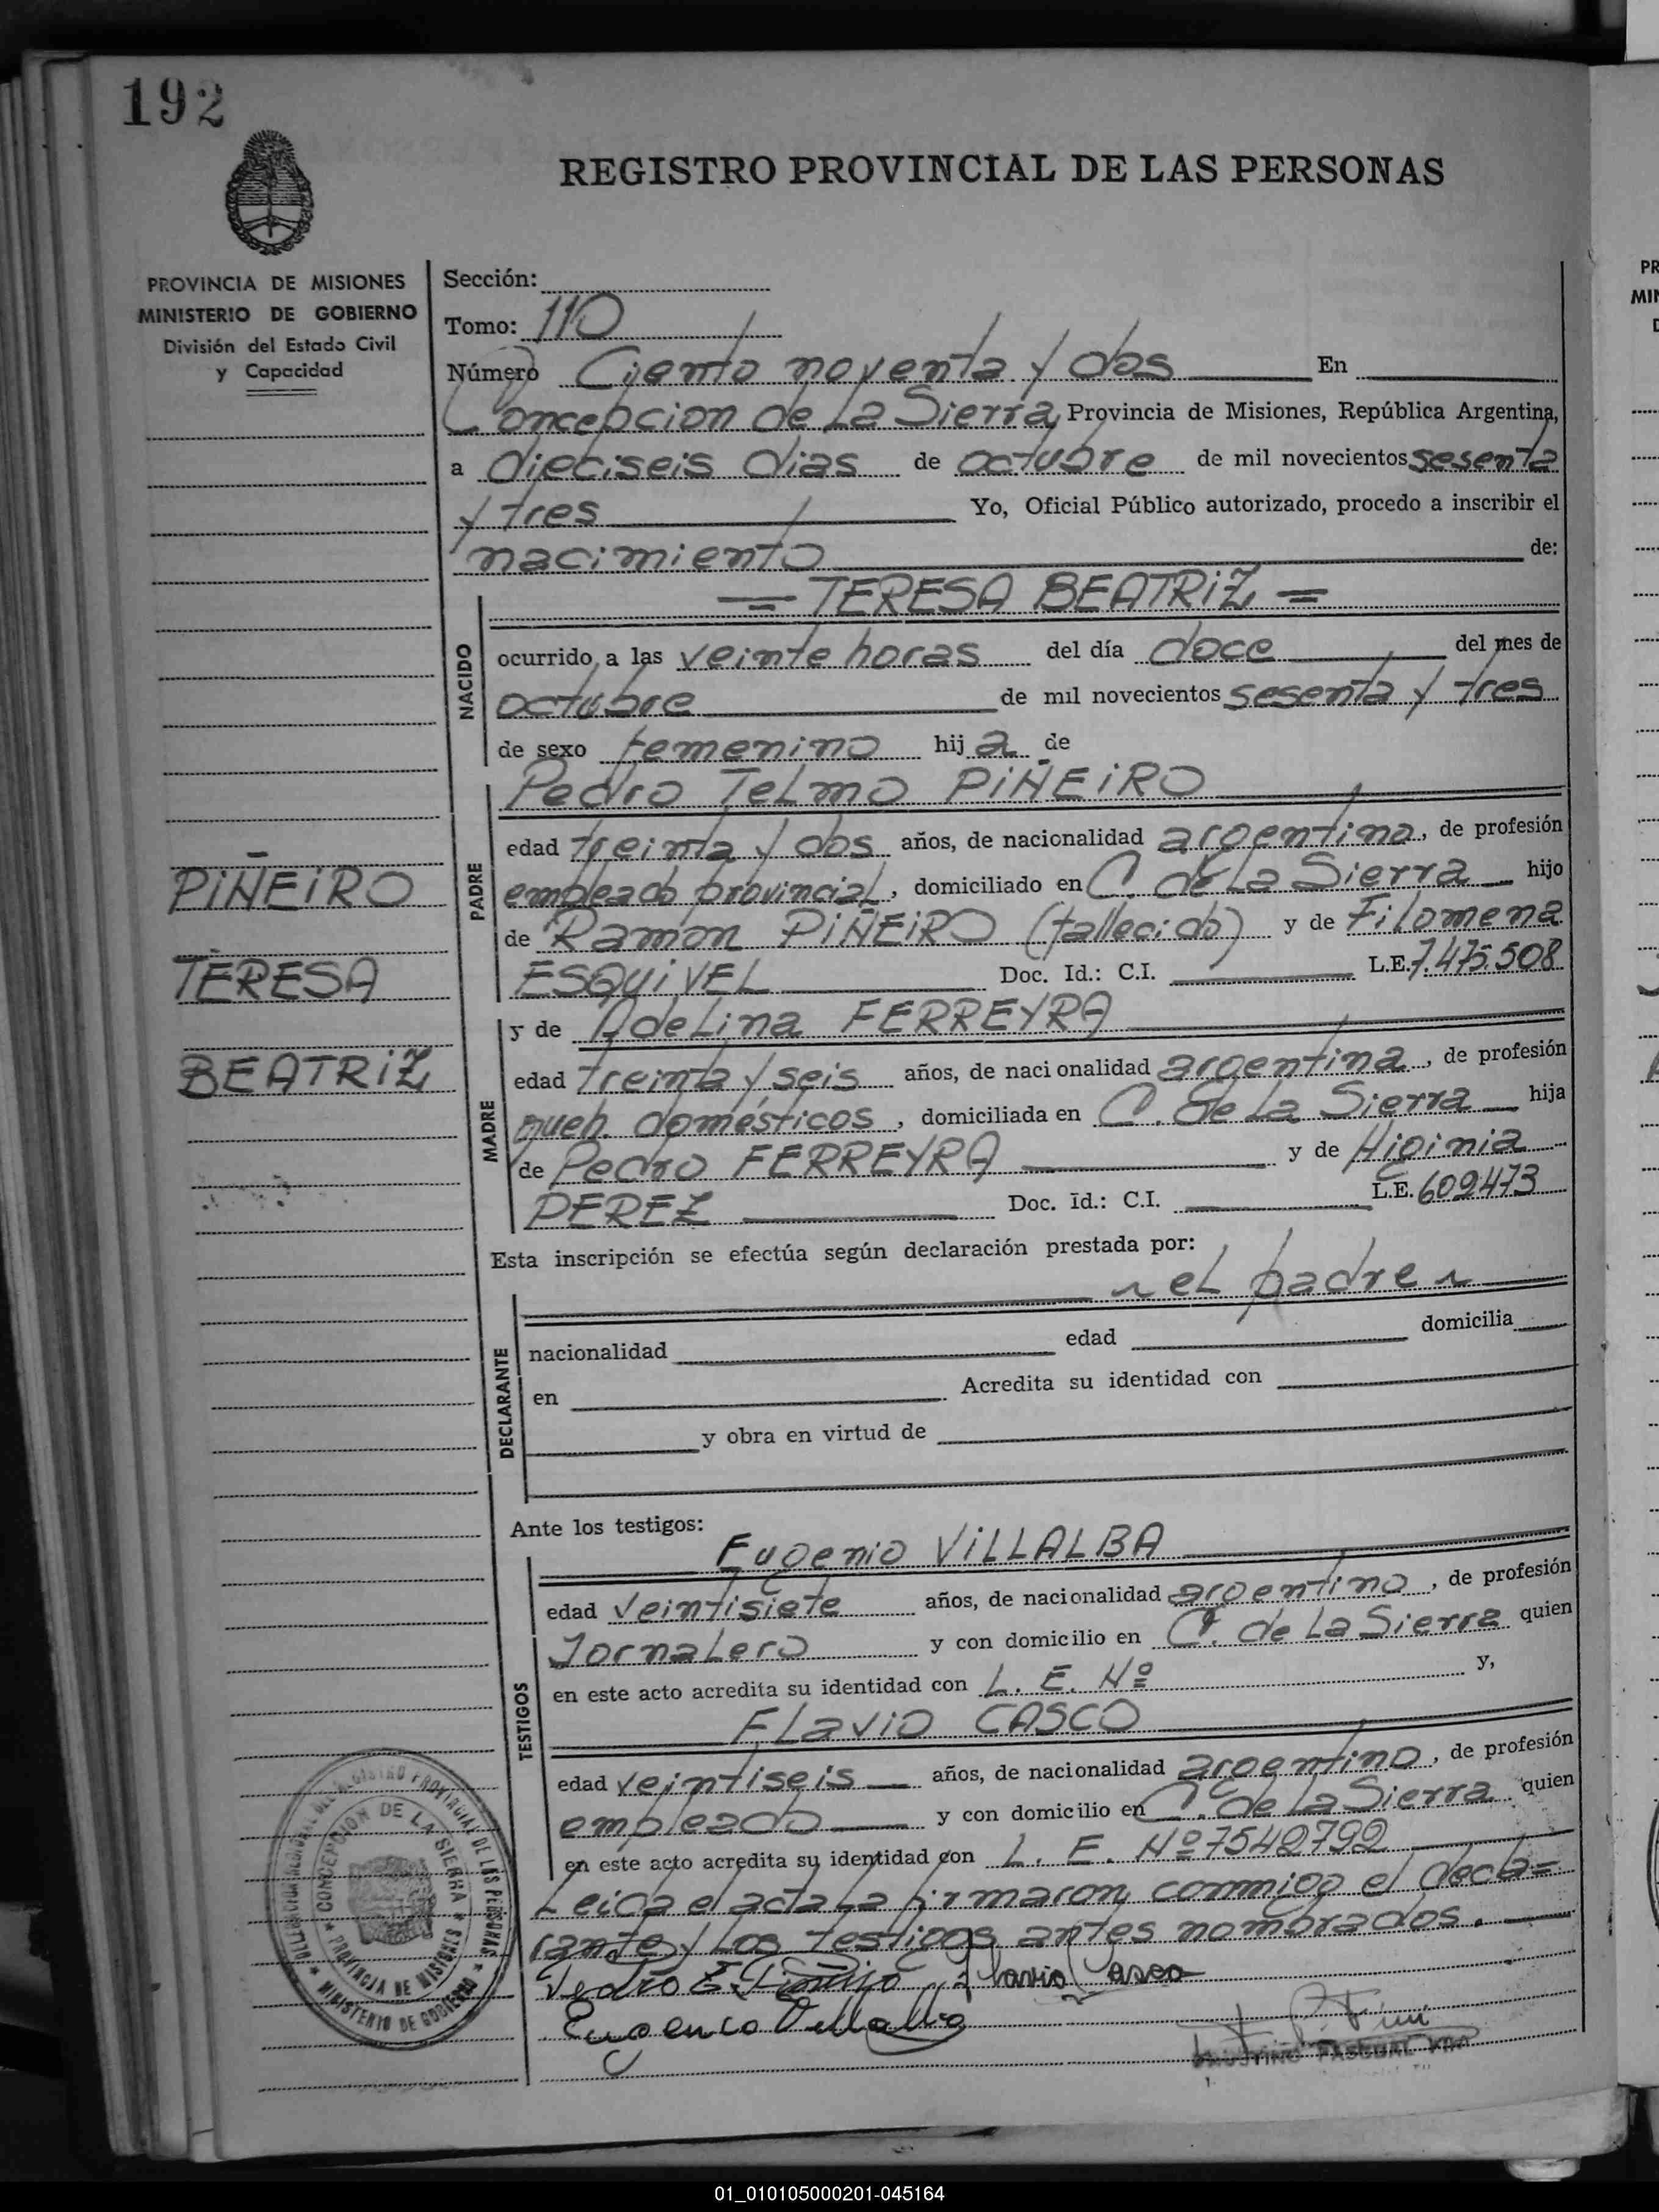 192
REGISTRO PROVINCIAL DE LAS PERSONAS
PROVINCIA DE MISIONES
MINISTERIO DE GOBIERNO
División del Estado Civil
y Capacidad
Sección:
Tomo: 110
Número Ciento noventa y dos En
Concepcion de La Sierra, Provincia de Misiones, República Argentina,
a dieciseis dias de octubre de mil novecientos sesenta
y tres Yo, Oficial Público autorizado, procedo a inscribir el
nacimiento de:
= TERESA BEATRiZ =
NACIDO
ocurrido a las veinte horas del día doce del mes de
octubre de mil novecientos sesenta y tres
de sexo femenino hij a de
Pedro Telmo PiÑEiRO
PADRE
edad treinta y dos años, de nacionalidad argentina, de profesión
empleado provincial, domiciliado en C. de La Sierra hijo
de Ramon PiÑEiRO (fallecido) y de Filomena
ESQUiVEL Doc. Id.: C.I. L.E. 7.475.508
PiÑEiRO
TERESA
BEATRiZ
y de AdeLina FERREYRA
MADRE
edad treinta y seis años, de naci onalidad argentina, de profesión
queh. domésticos, domiciliada en C. de La Sierra hija
de Pedro FERREYRA y de Higinia
PEREZ Doc. Id.: C.I. L.E. 609473
Esta inscripción se efectúa según declaración prestada por:
~ eL padre ~
DECLARANTE
nacionalidad edad domicilia
en Acredita su identidad con
y obra en virtud de
Ante los testigos:
Eugenio ViLLALBA
TESTIGOS
edad veintisiete años, de nacionalidad argentino, de profesión
JornaLero y con domicilio en C. de La Sierra quien
en este acto acredita su identidad con L. E. Nº y,
FLavio CASCO
edad veintiseis años, de nacionalidad argentino, de profesión
empleado y con domicilio en C. de La Sierra quien
en este acto acredita su identidad con L. E. Nº 7542792
Leida el acta La firmaron conmigo el decla=
rante y Los testigos antes nombrados.
Pedro Flavio Casco
Eugenio Villalba
FAUSTINO PASCUAL
CONCEPCION DE LA SIERRA
PROVINCIA DE MISIONES
MINISTERIO DE GOBIERNO
01_010105000201-045164